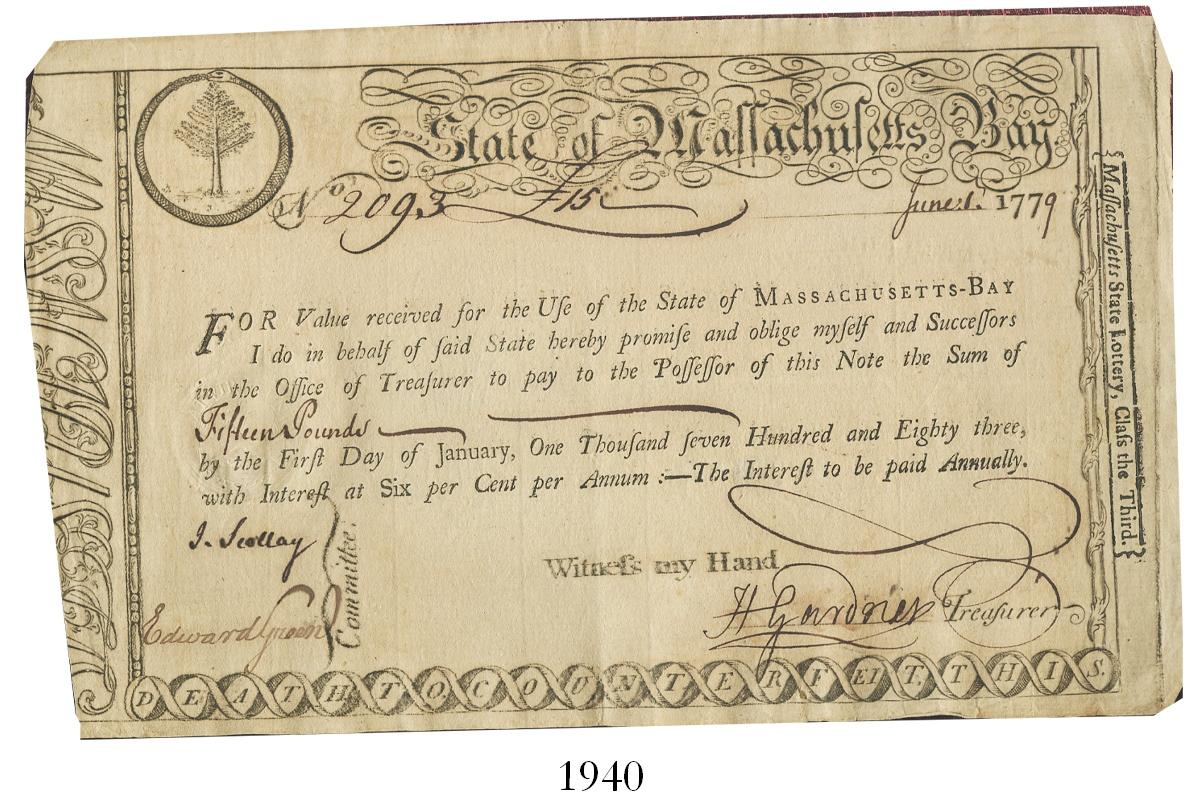 State of Maſſachuſetts Bay
No. 2093 £15 June 1. 1779
FOR Value received for the Uſe of the State of MASSACHUSETTS-BAY
I do in behalf of ſaid State hereby promiſe and oblige myſelf and Succeſſors
in the Office of Treaſurer to pay to the Poſſeſſor of this Note the Sum of
Fifteen Pounds
by the Firſt Day of January, One Thouſand ſeven Hundred and Eighty three,
with Intereſt at Six per Cent per Annum :—The Intereſt to be paid Annually.
J. Scollay
Edward Green
Committee.
Witneſs my Hand
H Gardner Treaſurer
DEATH TO COUNTERFEIT THIS.
{Maſſachuſetts State Lottery, Claſs the Third.}
1940